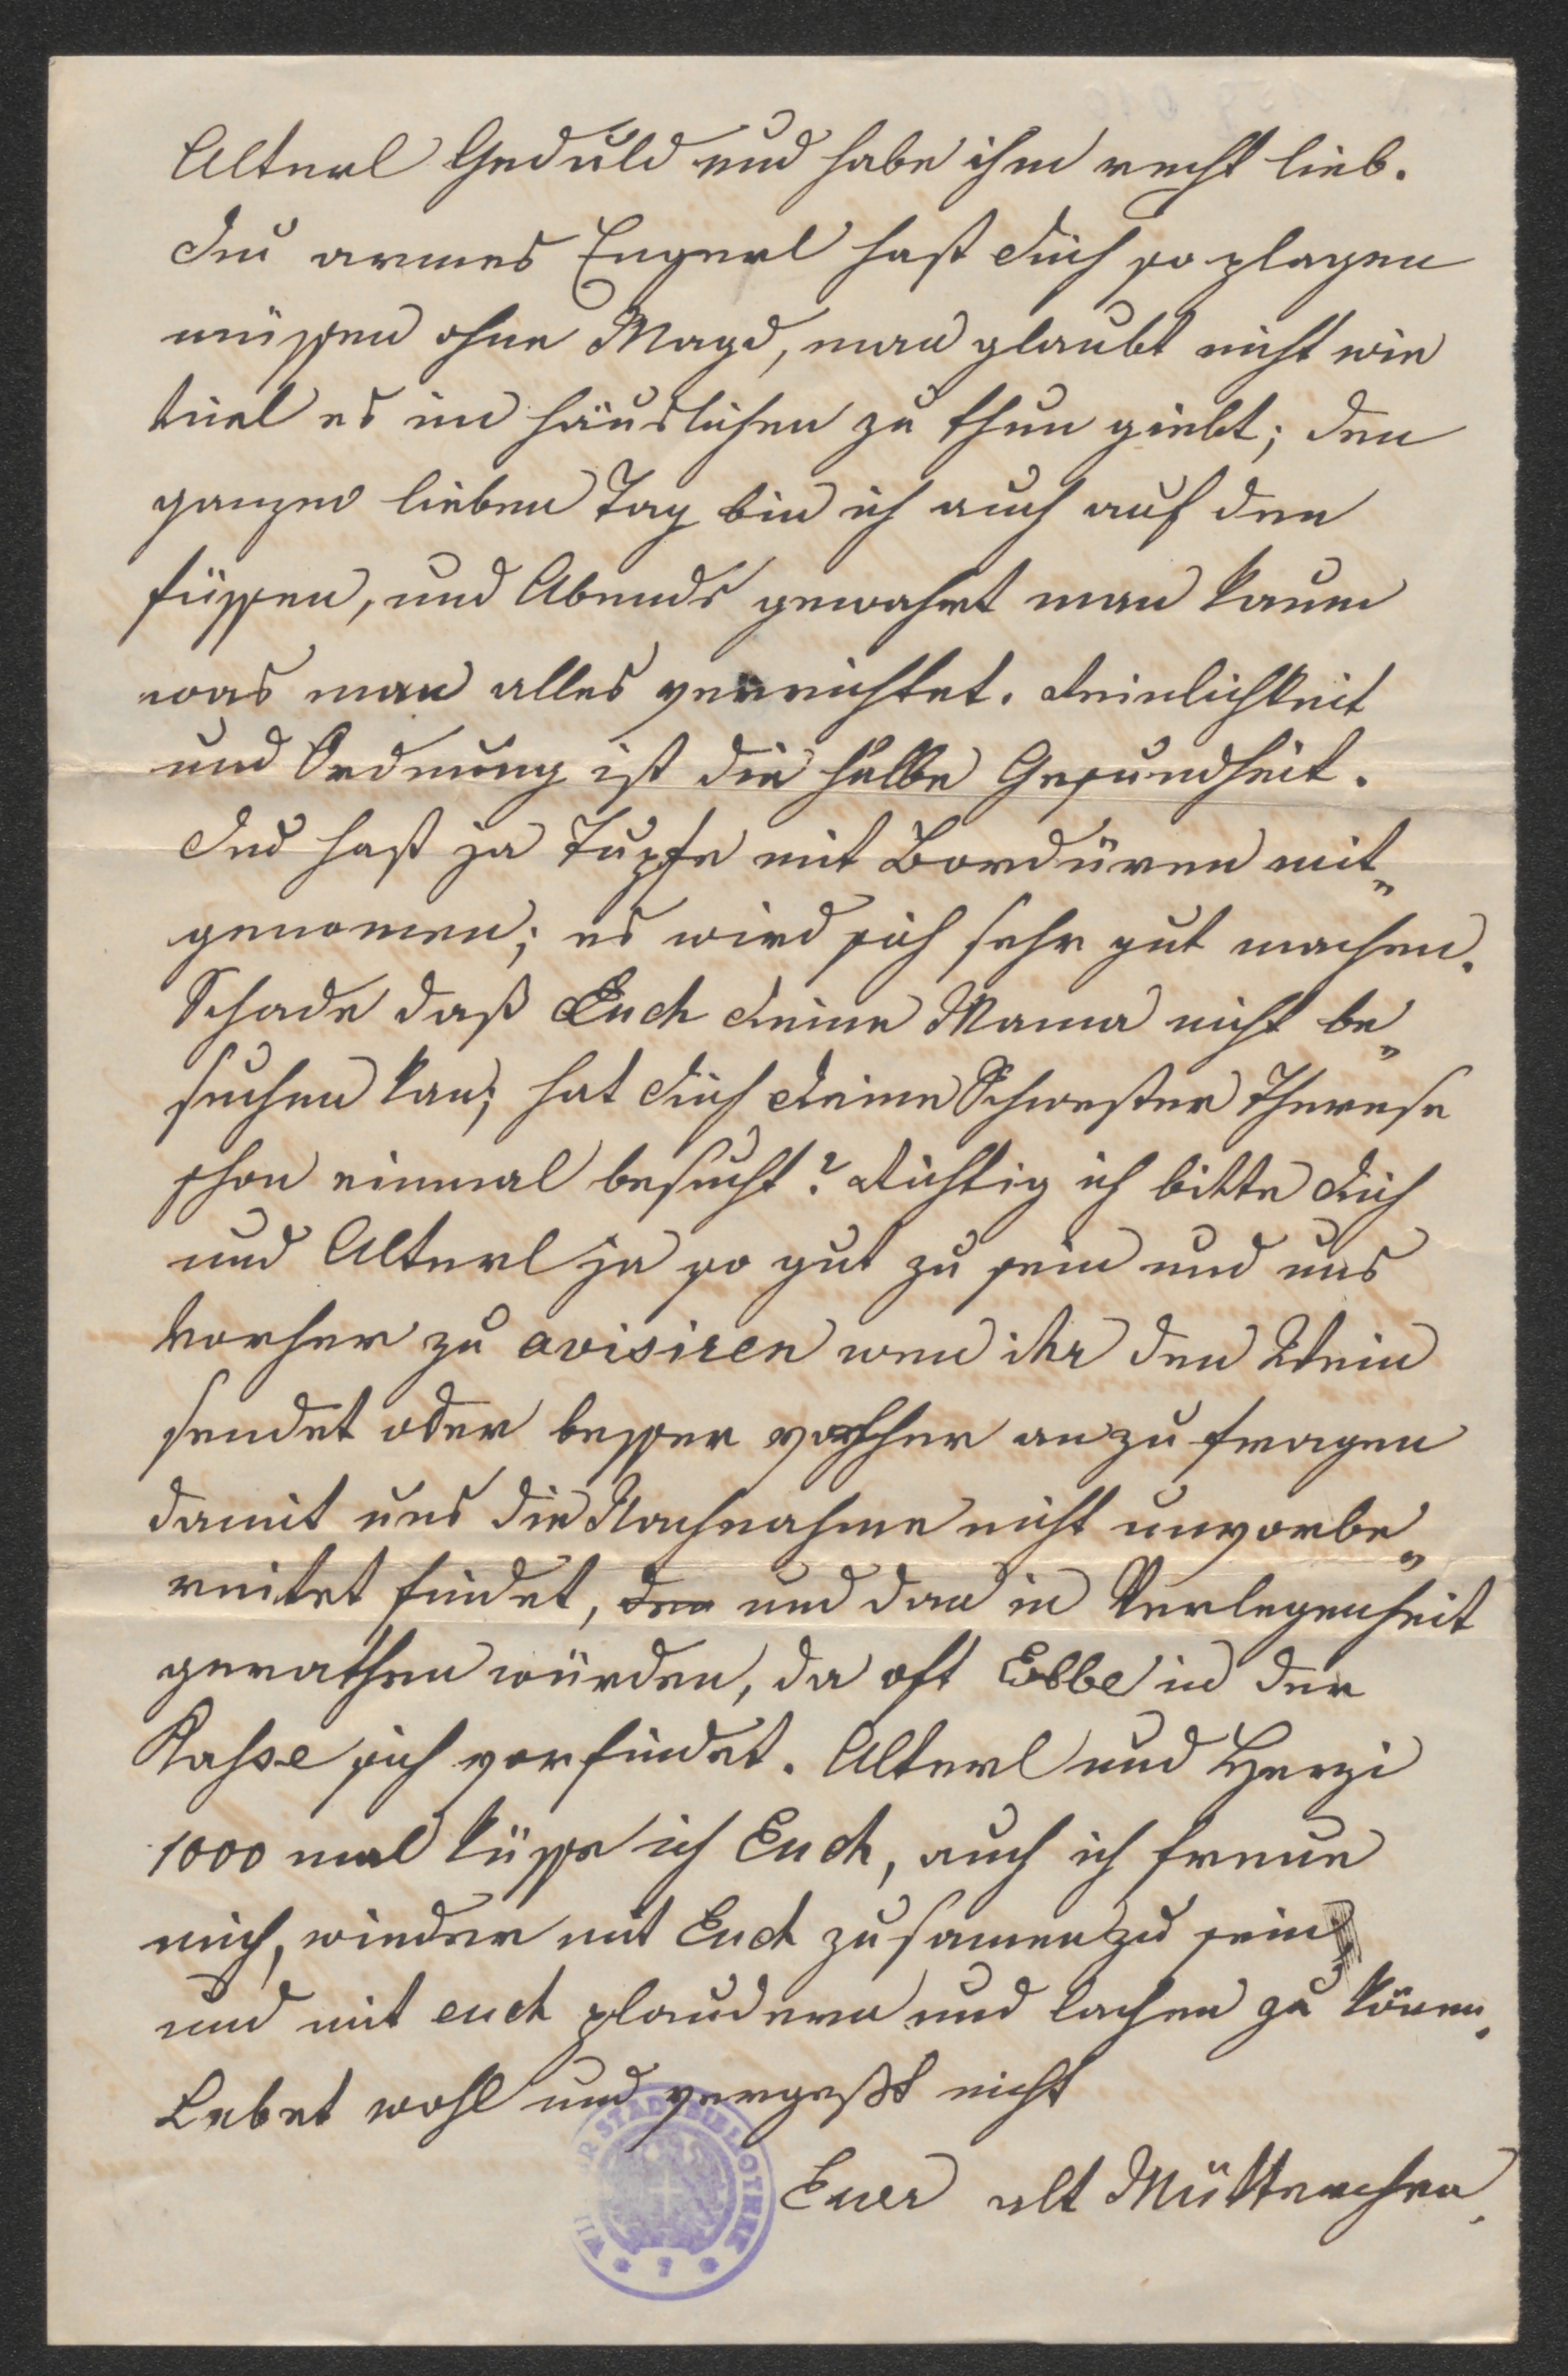 Alterl Geduld und habe ihm recht lieb.
Du armes Engerl hast Dich so plagen
müssen ohne Magd, man glaubt nicht wie
viel es im häuslichen zu thun giebt; den
ganzen lieben Tag bin ich auch auf den
füssen, und Abends gewahrt man kaum
was man alles verrichtet. Reinlichkeit
und Ordnung ist die halbe Gesundheit.
Du hast ja Tupfe mit Bordüren mit„
genomen; es wird sich sehr gut machen.
Schade daß Euch Deine Mama nicht be„
suchen kan; hat Dich Deine Schwester Therese
schon einmal besucht? Richtig ich bitte Dich
und Alterl ja so gut zu sein und uns
vorher zu avisiren wen ihr den Wein
sendet oder besser vorher anzufragen
damit uns die Nachnahme nicht unvorbe„
reitet findet, den und dan in Verlegenheit
gerathen würden, da oft Ebbe in der
Kasse sich vorfindet. Alterl und Herzi
1000 mal küsse ich Euch, auch ich freue
mich, wieder mit Euch zusamen zu sein,
und mit euch plaudern und lachen zu könen.
Lebet wohl und vergeßt nicht
Euer alt Mütterchen.
STADTBIBLIOTHEK